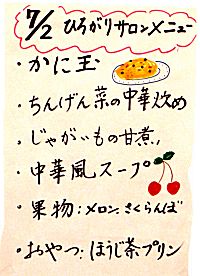 7/2 ひろがりサロンメニュー
・かに玉
・ちんげん菜の中華炒め
・じゃがいもの甘煮
・中華風スープ
・果物:メロン、さくらんぼ
・おやつ:ほうじ茶プリン